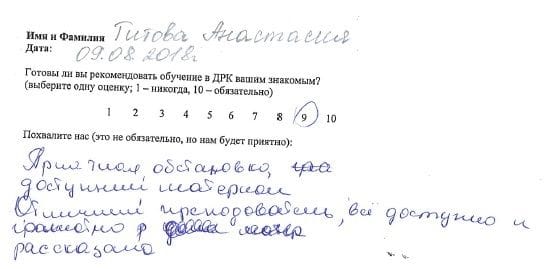 Имя и Фамилия Титова Анастасия
Дата: 09.08.2018г
Готовы ли вы рекомендовать обучение в ДРК вашим знакомым?
(выберите одну оценку; 1 – никогда, 10 – обязательно)
1 2 3 4 5 6 7 8 9 10
Похвалите нас (это не обязательно, но нам будет приятно):
Приятная обстановка,
доступный материал
Отличный преподователь, всё доступно и
грамотно
рассказано